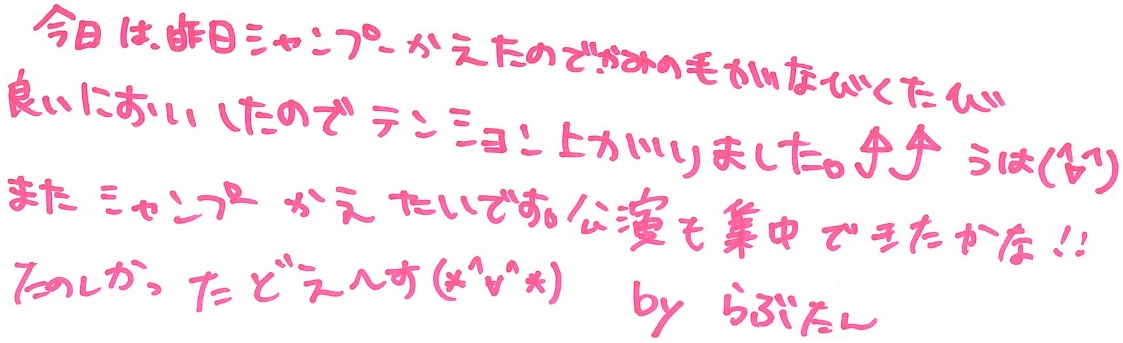 今日は、昨日シャンプーかえたのでかみの毛がなびくたび
良いにおいしたのでテンション上がりました。↑↑ うは(^∀^)
またシャンプーかえたいです。公演も集中できたかな!!
たのしかったどえ〜す(*^∀^*) by らぶたん